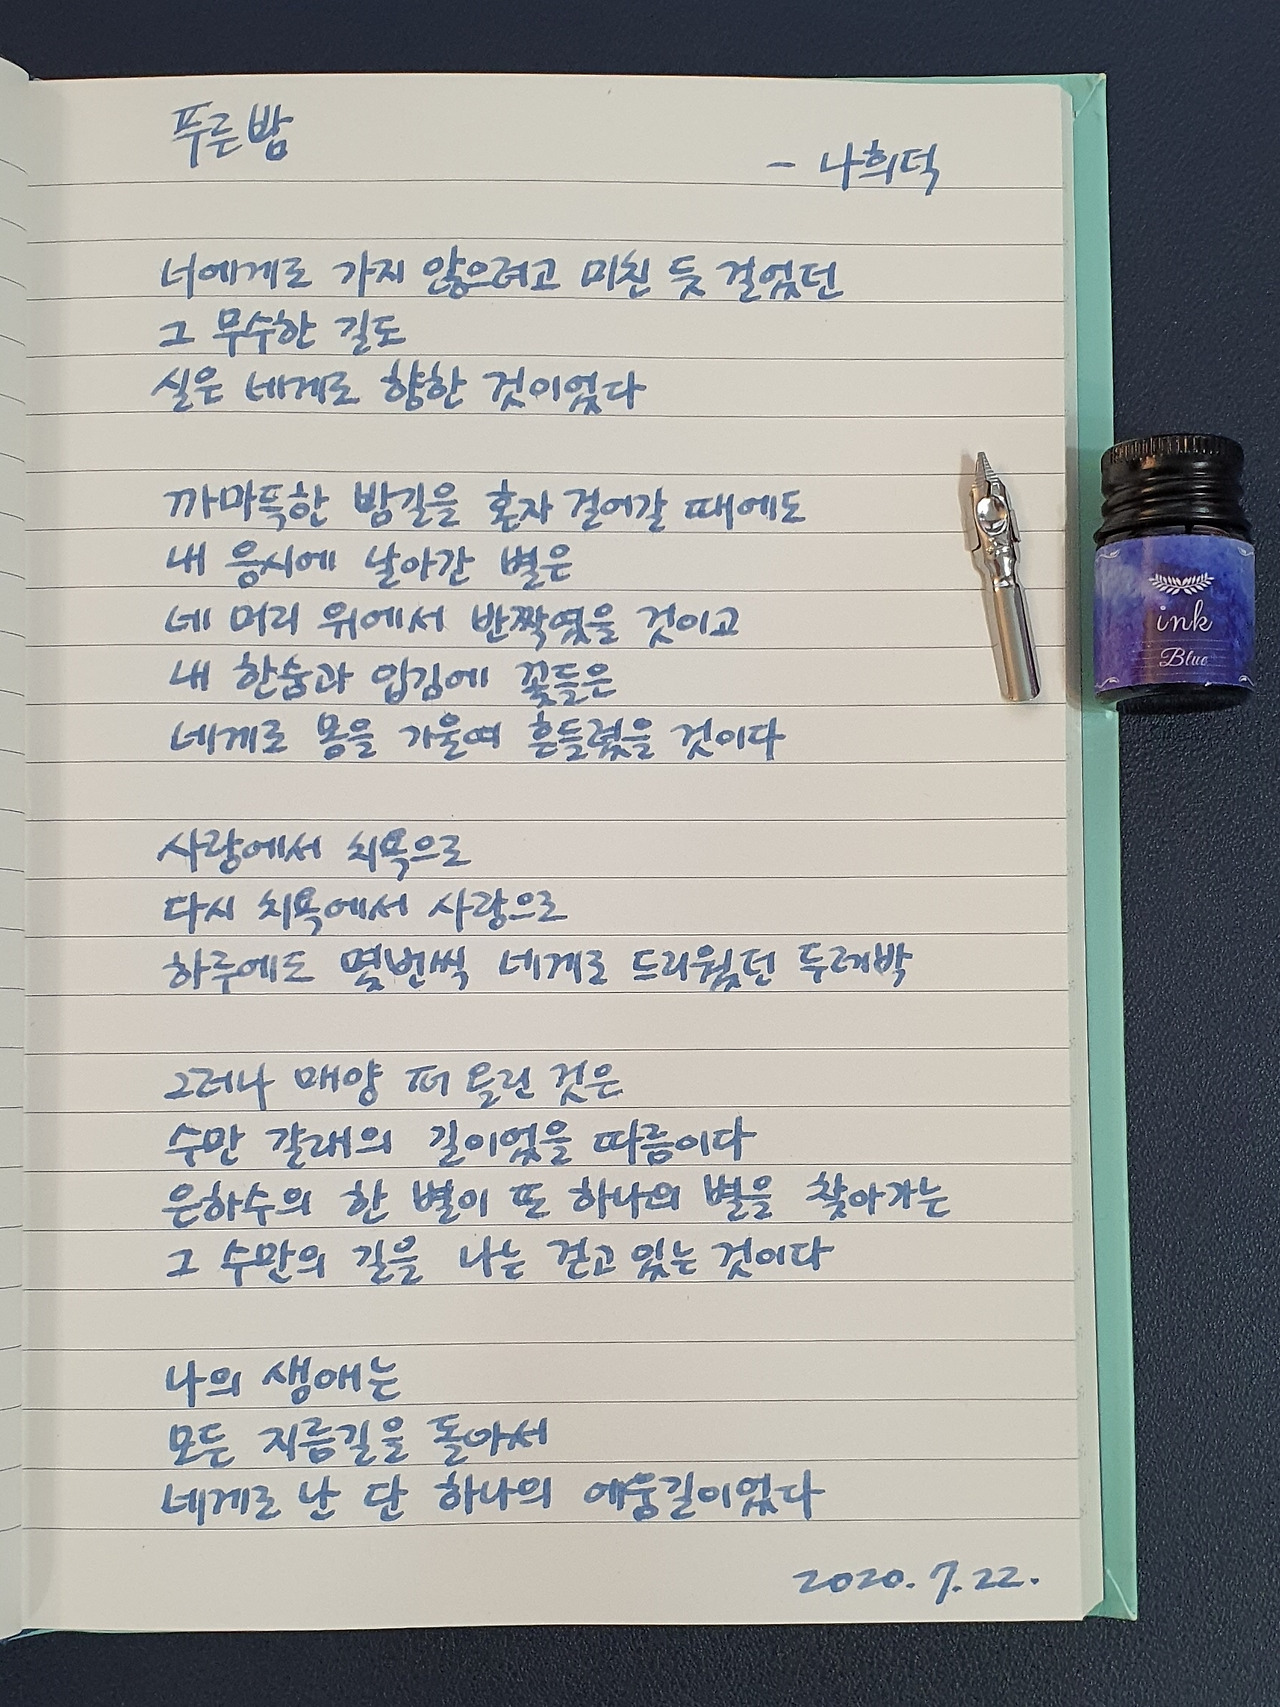 푸른밤
- 나희덕
너에게로 가지 않으려고 미친 듯 걸었던
그 무수한 길도
실은 네게로 향한 것이었다
까마득한 밤길을 혼자 걸어갈 때에도
내 응시에 날아간 별은
네 머리 위에서 반짝였을 것이고
내 한숨과 입김에 꽃들은
네게로 몸을 기울여 흔들렸을 것이다
사랑에서 치욕으로
다시 치욕에서 사랑으로
하루에도 몇번씩 네게로 드리웠던 두레박
그러나 매양 퍼 올린 것은
수만 갈래의 길이었을 따름이다
은하수의 한 별이 또 하나의 별을 찾아가는
그 수만의 길을 나는 걷고 있는 것이다
나의 생애는
모든 지름길을 돌아서
네게로 난 단 하나의 에움길이었다
2020. 7. 22.
ink
Blue